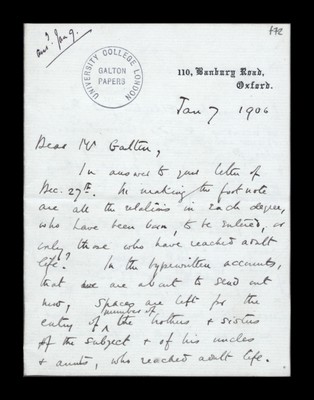 172
ansd. Jan 9.
UNIVERSITY COLLEGE LONDON
GALTON
PAPERS
110, Banbury Road,
Oxford.
Jan 7 1906
Dear Mr Galton,
In answer to your letter of
Dec. 27th. In making the foot note
are all the relations in each degree,
who have been born, to be entered, or
only those who have reached adult
life? In the typewritten accounts,
that are about to send out
now, spaces are left for the
number of
entry of ^ the brothers & sisters
of the subject & of his uncles
& aunts, who reached adult life.